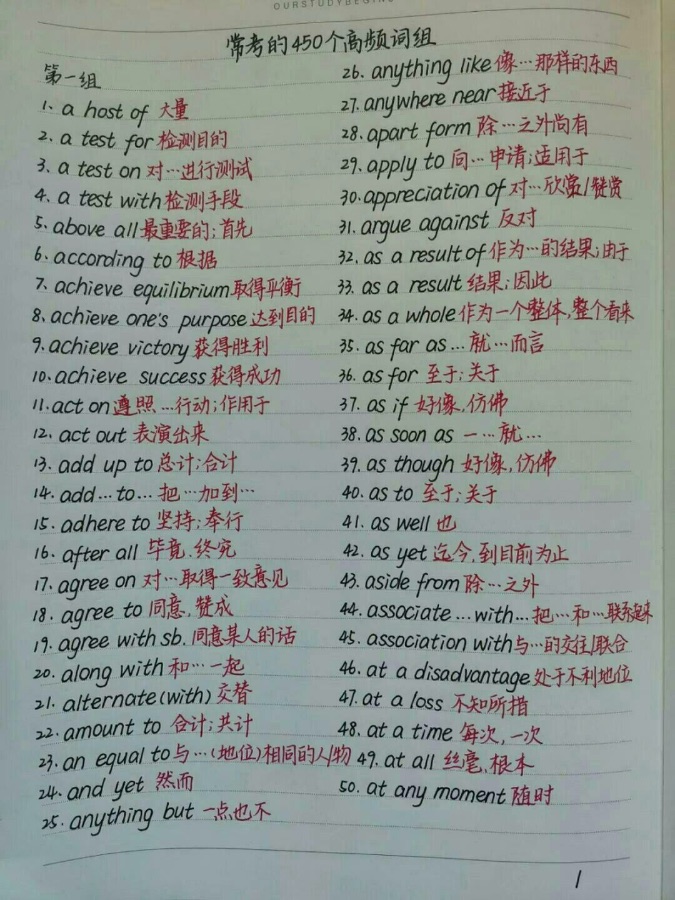 OURSTUDYBEGINS
常考的450个高频词组
第一组
1. a host of 大量
2. a test for 检测目的
3. a test on 对…进行测试
4. a test with 检测手段
5. above all 最重要的;首先
6. according to 根据
7. achieve equilibrium 取得平衡
8. achieve one's purpose 达到目的
9. achieve victory 获得胜利
10. achieve success 获得成功
11. act on 遵照…行动;作用于
12. act out 表演出来
13. add up to 总计;合计
14. add…to… 把…加到…
15. adhere to 坚持;奉行
16. after all 毕竟.终究
17. agree on 对…取得一致意见
18. agree to 同意,赞成
19. agree with sb. 同意某人的话
20. along with 和…一起
21. alternate(with) 交替
22. amount to 合计;共计
23. an equal to 与…(地位)相同的人/物
24. and yet 然而
25. anything but 一点也不
26. anything like 像…那样的东西
27. anywhere near 接近于
28. apart form 除…之外尚有
29. apply to 向…申请;适用于
30. appreciation of 对…欣赏/赞赏
31. argue against 反对
32. as a result of 作为…的结果;由于
33. as a result 结果;因此
34. as a whole 作为一个整体,整个看来
35. as far as… 就…而言
36. as for 至于;关于
37. as if 好像,仿佛
38. as soon as 一…就…
39. as though 好像,仿佛
40. as to 至于;关于
41. as well 也
42. as yet 迄今,到目前为止
43. aside from 除…之外
44. associate…with… 把…和…联系起来
45. association with 与…的交往/联合
46. at a disadvantage 处于不利地位
47. at a loss 不知所措
48. at a time 每次,一次
49. at all 丝毫,根本
50. at any moment 随时
1